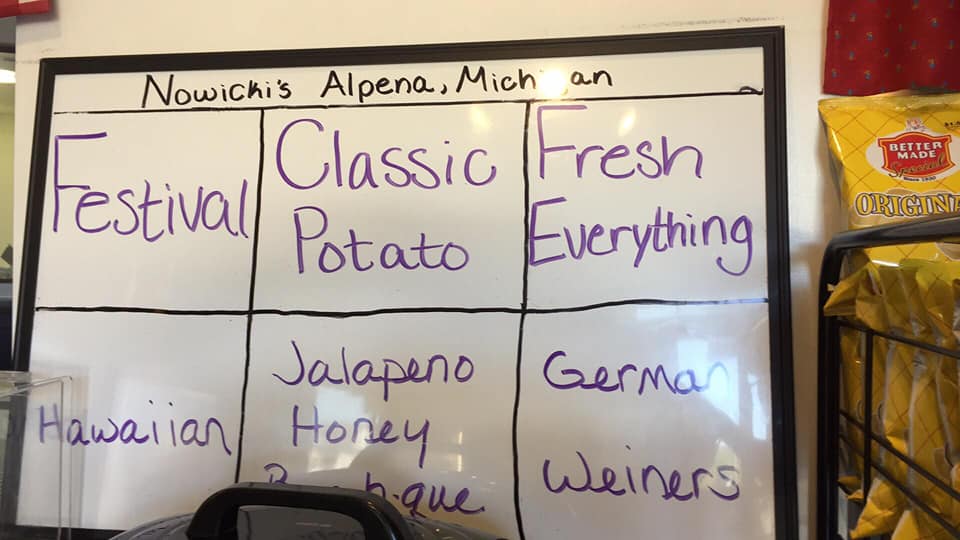 Nowicki's Alpena, Michigan
Festival
Classic
Potato
Fresh
Everything
Hawaiian
Jalapeno
Honey
German
Weiners
BETTER
MADE
Special
Since 1930